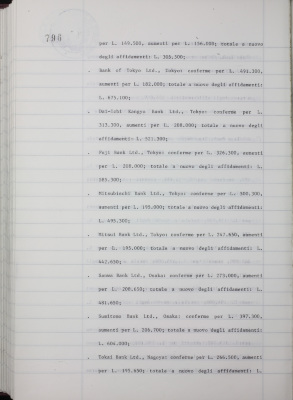 796
per L. 149.500, aumenti per L. 156.000; totale a nuovo
degli affidamenti: L. 305.500;
. Bank of Tokyo Ltd., Tokyo: conferme per L. 491.100,
aumenti per L. 182.000; totale a nuovo degli affidamenti:
L. 673.100;
. Dai-Ichi Kangyo Bank Ltd., Tokyo: conferme per L.
313.300, aumenti per L. 208.000; totale a nuovo degli
affidamenti: L. 521.300;
. Fuji Bank Ltd., Tokyo: conferme per L. 326.300, aumenti
per L. 258.000; totale a nuovo degli affidamenti: L.
. Mitsubischi Bank Ltd., Tokyo: conferme per L. 300.300,
aumenti per L. 195.000; totale a nuovo degli affidamenti:
L. 495.300;
. Mitsui Bank Ltd., Tokyo: conferme per L. 247.650, aumenti
per L. 195.000; totale a nuovo degli affidamenti: L.
442.650;
. Sanwa Bank Ltd., Osaka: conferme per L. 273.000, aumenti
per L. 208.650; totale a nuovo degli affidamenti: L.
481.650;
. Sumitomo Bank Ltd., Osaka: conferme per L. 397.300,
aumenti per L. 206.700; totale a nuovo degli affidamenti:
L. 604.000;
. Tokai Bank Ltd., Nagoya: conferme per L. 266.500, aumenti
per L. 195.650; totale a nuovo degli affidamenti: L.